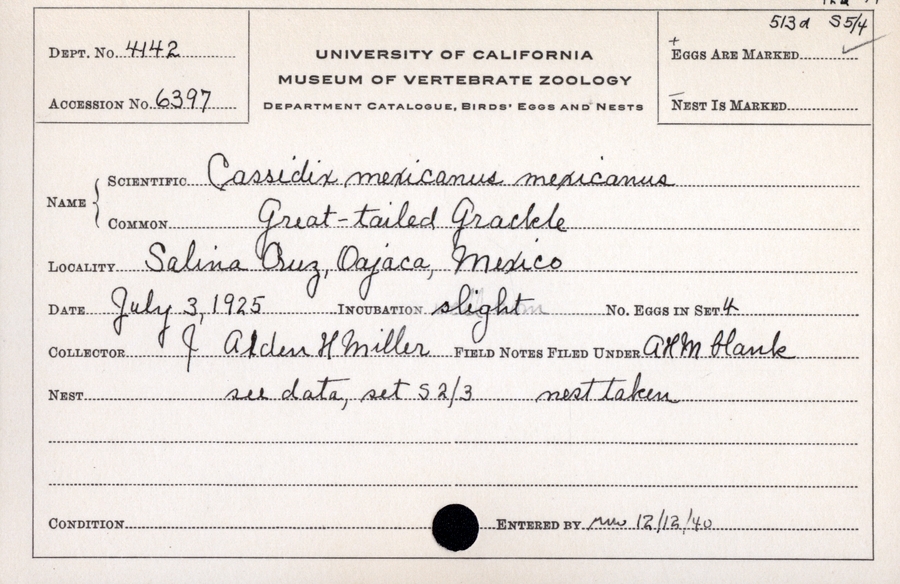 513d S5/4
DEPT. NO. 4142
UNIVERSITY OF CALIFORNIA
+
EGGS ARE MARKED
MUSEUM OF VERTEBRATE ZOOLOGY
ACCESSION NO. 6397
DEPARTMENT CATALOGUE, BIRDS' EGGS AND NESTS
NEST IS MARKED
NAME
SCIENTIFIC Cassidix mexicanus mexicanus
COMMON Great-tailed Grackle
LOCALITY Salina Cruz, Oajaca, Mexico
DATE July 3, 1925 INCUBATION slight NO. EGGS IN SET 4
COLLECTOR Alden H Miller FIELD NOTES FILED UNDER AHM blank
NEST see data, set S2/3 nest taken
CONDITION ENTERED BY 12/12/40